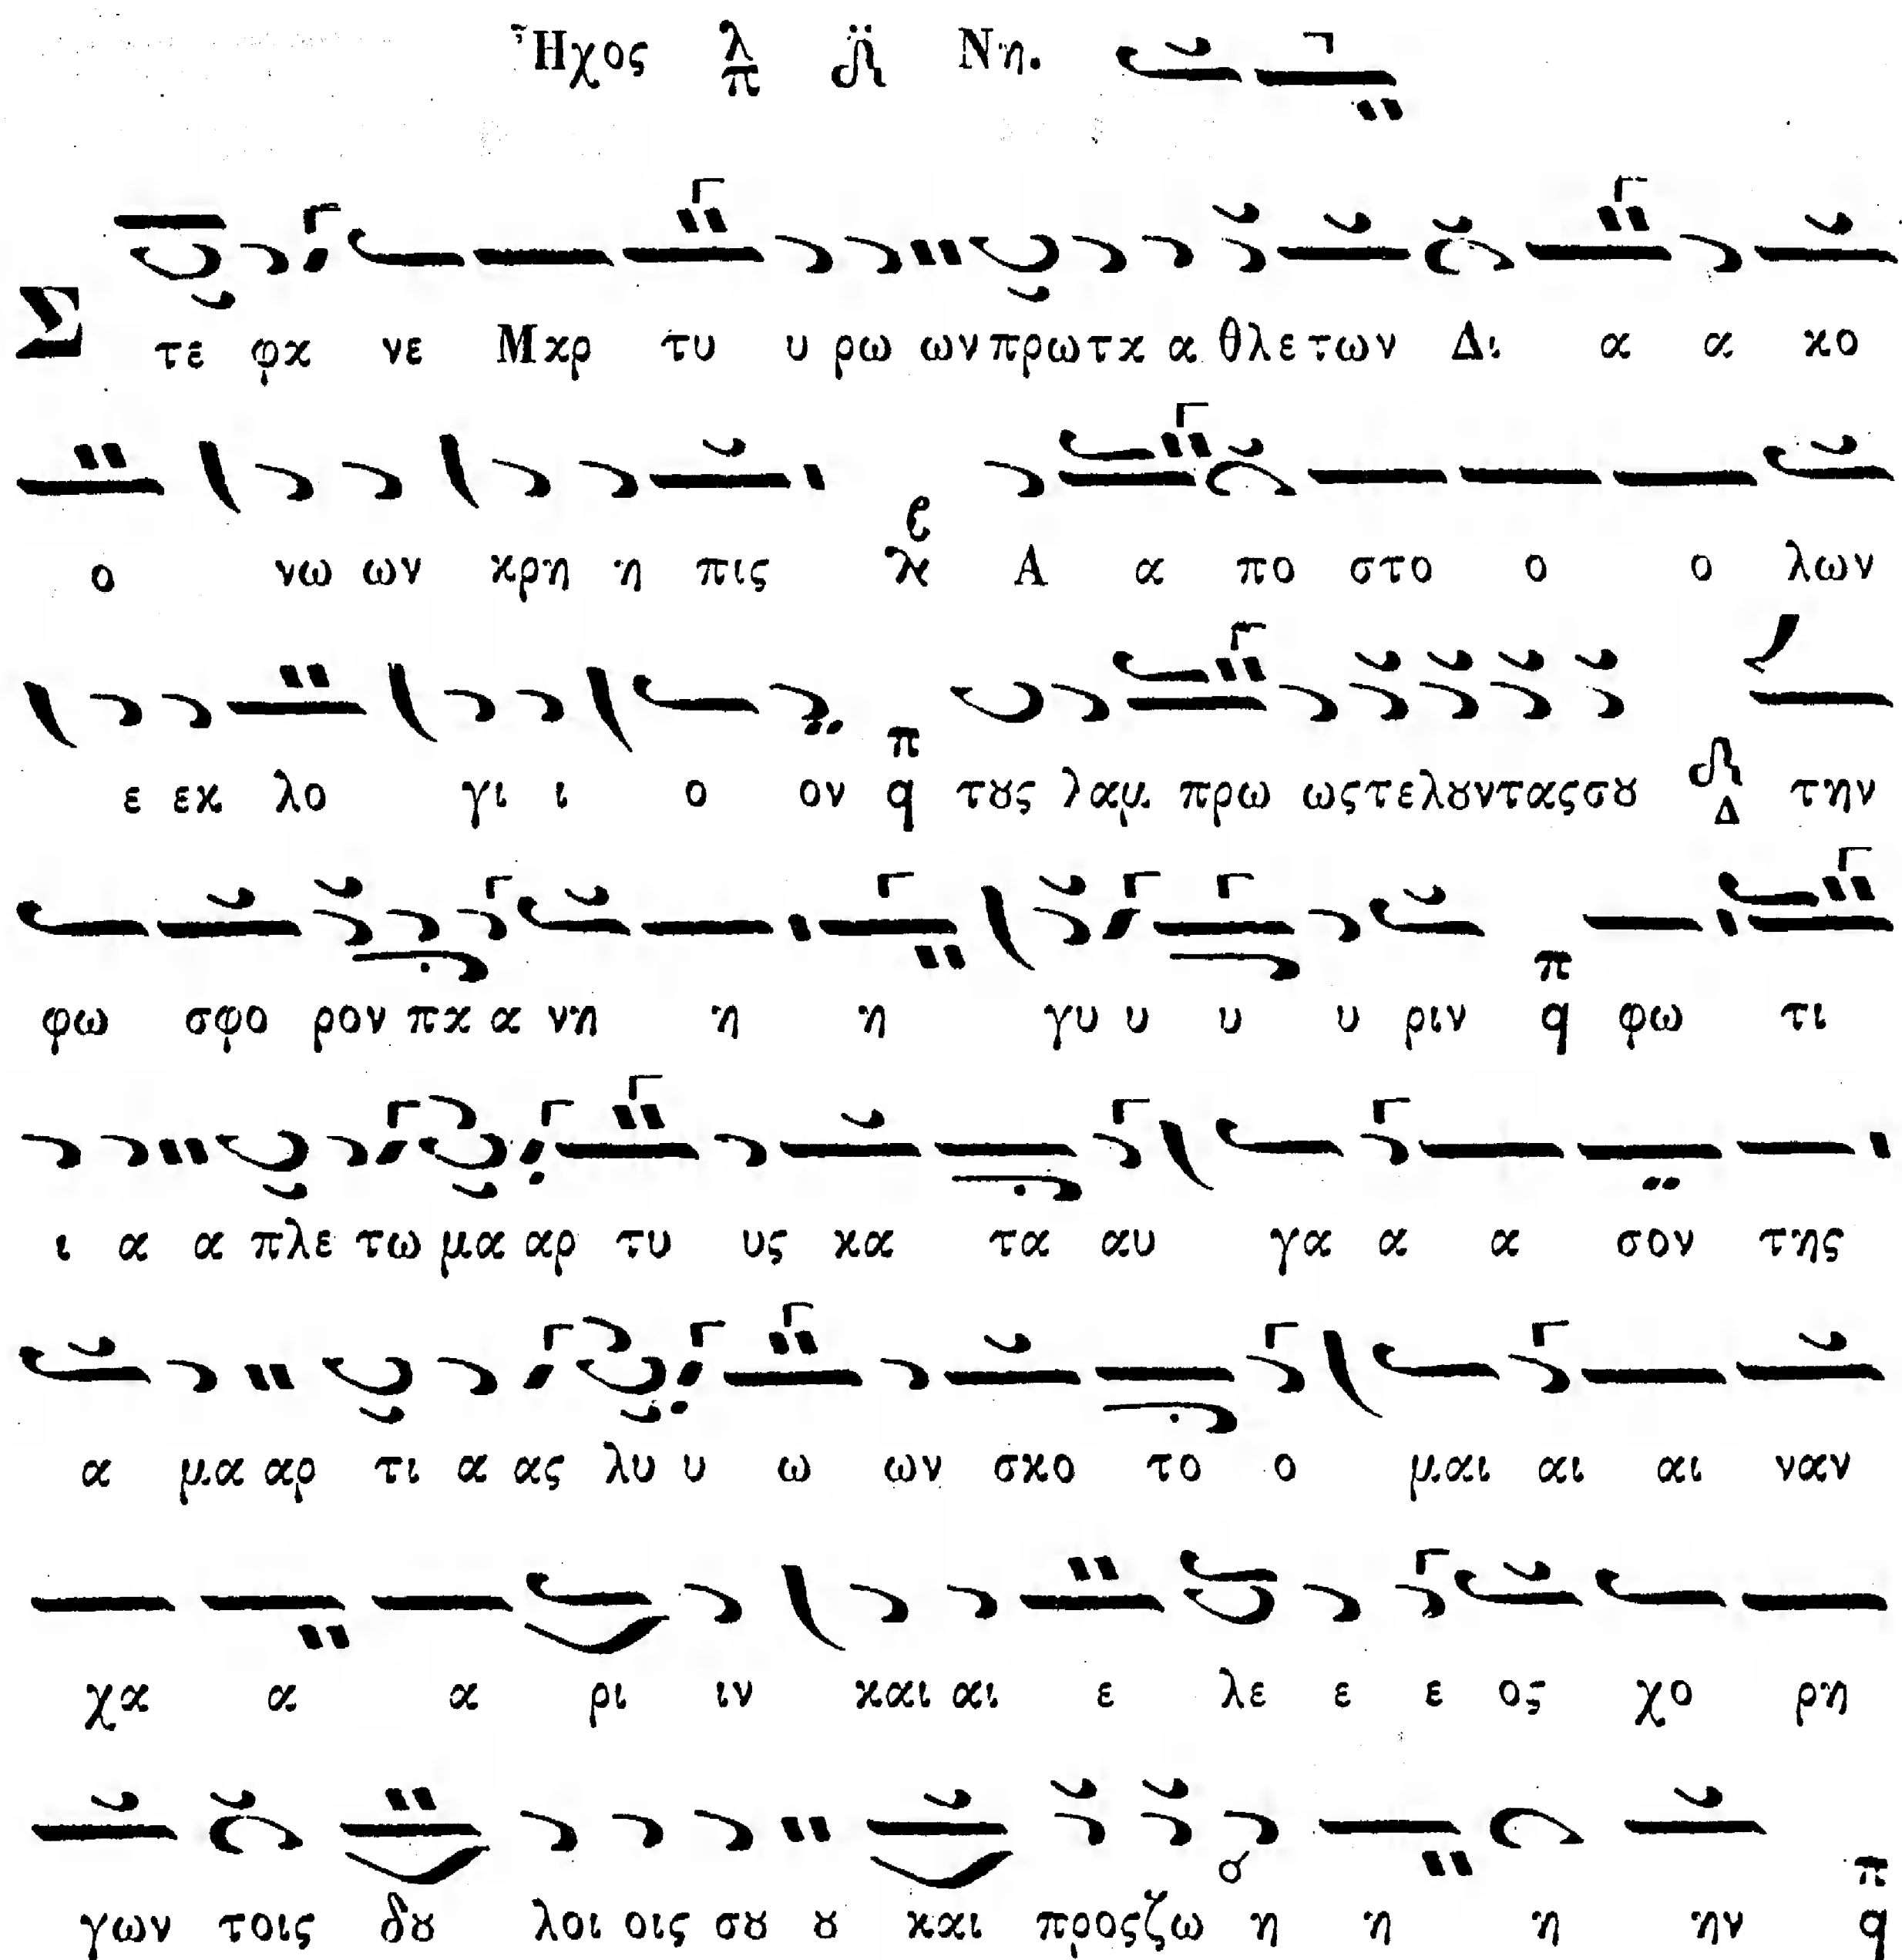 Ἦχος λ π Νη.
Σ τε φα νε Μαρ τυ υ ρω ων πρω τα α θλε των Δι α α κο
ο νω ων κρη η πις Α α πο στο ο ο λων
ε εκ λο γι ι ο ον π q τȣς λαμ πρω ως τε λȣν τας σȣ Δ την
φω σφο ρον πα α νη η η γυ υ υ υ ριν π q φω τι
ι α α πλε τω μα αρ τυ υς κα τα αυ γα α α σον της
α μα αρ τι α ας λυ υ ω ων σκο το ο μαι αι αι ναν
χα α α ρι ιν και αι ε λε ε ε ος χο ρη
γων τοις δȣ λοι οις σȣ ȣ και προς ζω η η η ην π q